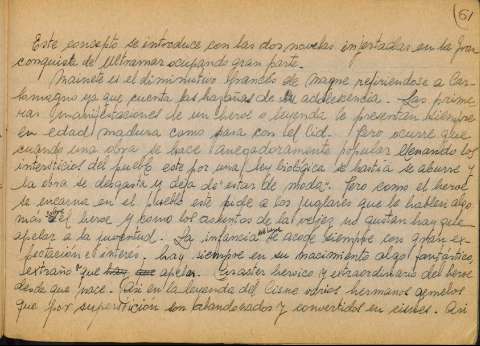 (51
Este concepto se introduce con las dos novelas injertadas en la Gran
conquista de Ultramar ocupando gran parte.
Mainete es el diminutivo francés de Magne refiriendose a Car-
lomagno ya que cuenta las hazañas de su adolescencia. Las prime-
ras manifestaciones de un heroe o leyenda le presentan siempre
en edad madura como pasa con el Cid. Pero ocurre que
cuando una obra se hace anegadoramente popular llenando los
intersticios del pueblo este por una ley biológica se hastía se aburre y
la obra se desgasta y deja de estar de moda. Pero como el heroe
se encarna en el pueblo este pide a los juglares que le hablen algo
más sobre el heroe y como los cuentos de la vejez no gustan hay que
apelar a la juventud. La infancia se acoge siempre con gran ex-
pectacion e interes. hay siempre en su nacimiento algo fantástico,
extraño a que apelar. Caracter heroico y extraordinario del heroe
desde que nace. Asi en la leyenda del Cisne varios hermanos gemelos
que por superstición son abandonados y convertidos en cisnes. Asi